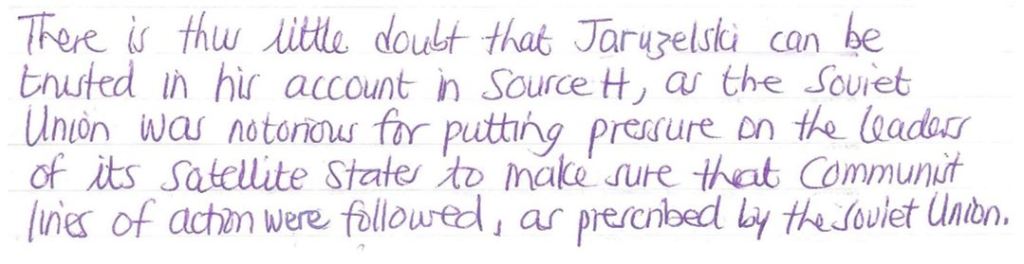 There is thus little doubt that Jaruzelski can be
trusted in his account in Source H, as the Soviet
Union was notorious for putting pressure on the leaders
of its satellite states to make sure that Communist
lines of action were followed, as prescribed by the Soviet Union.